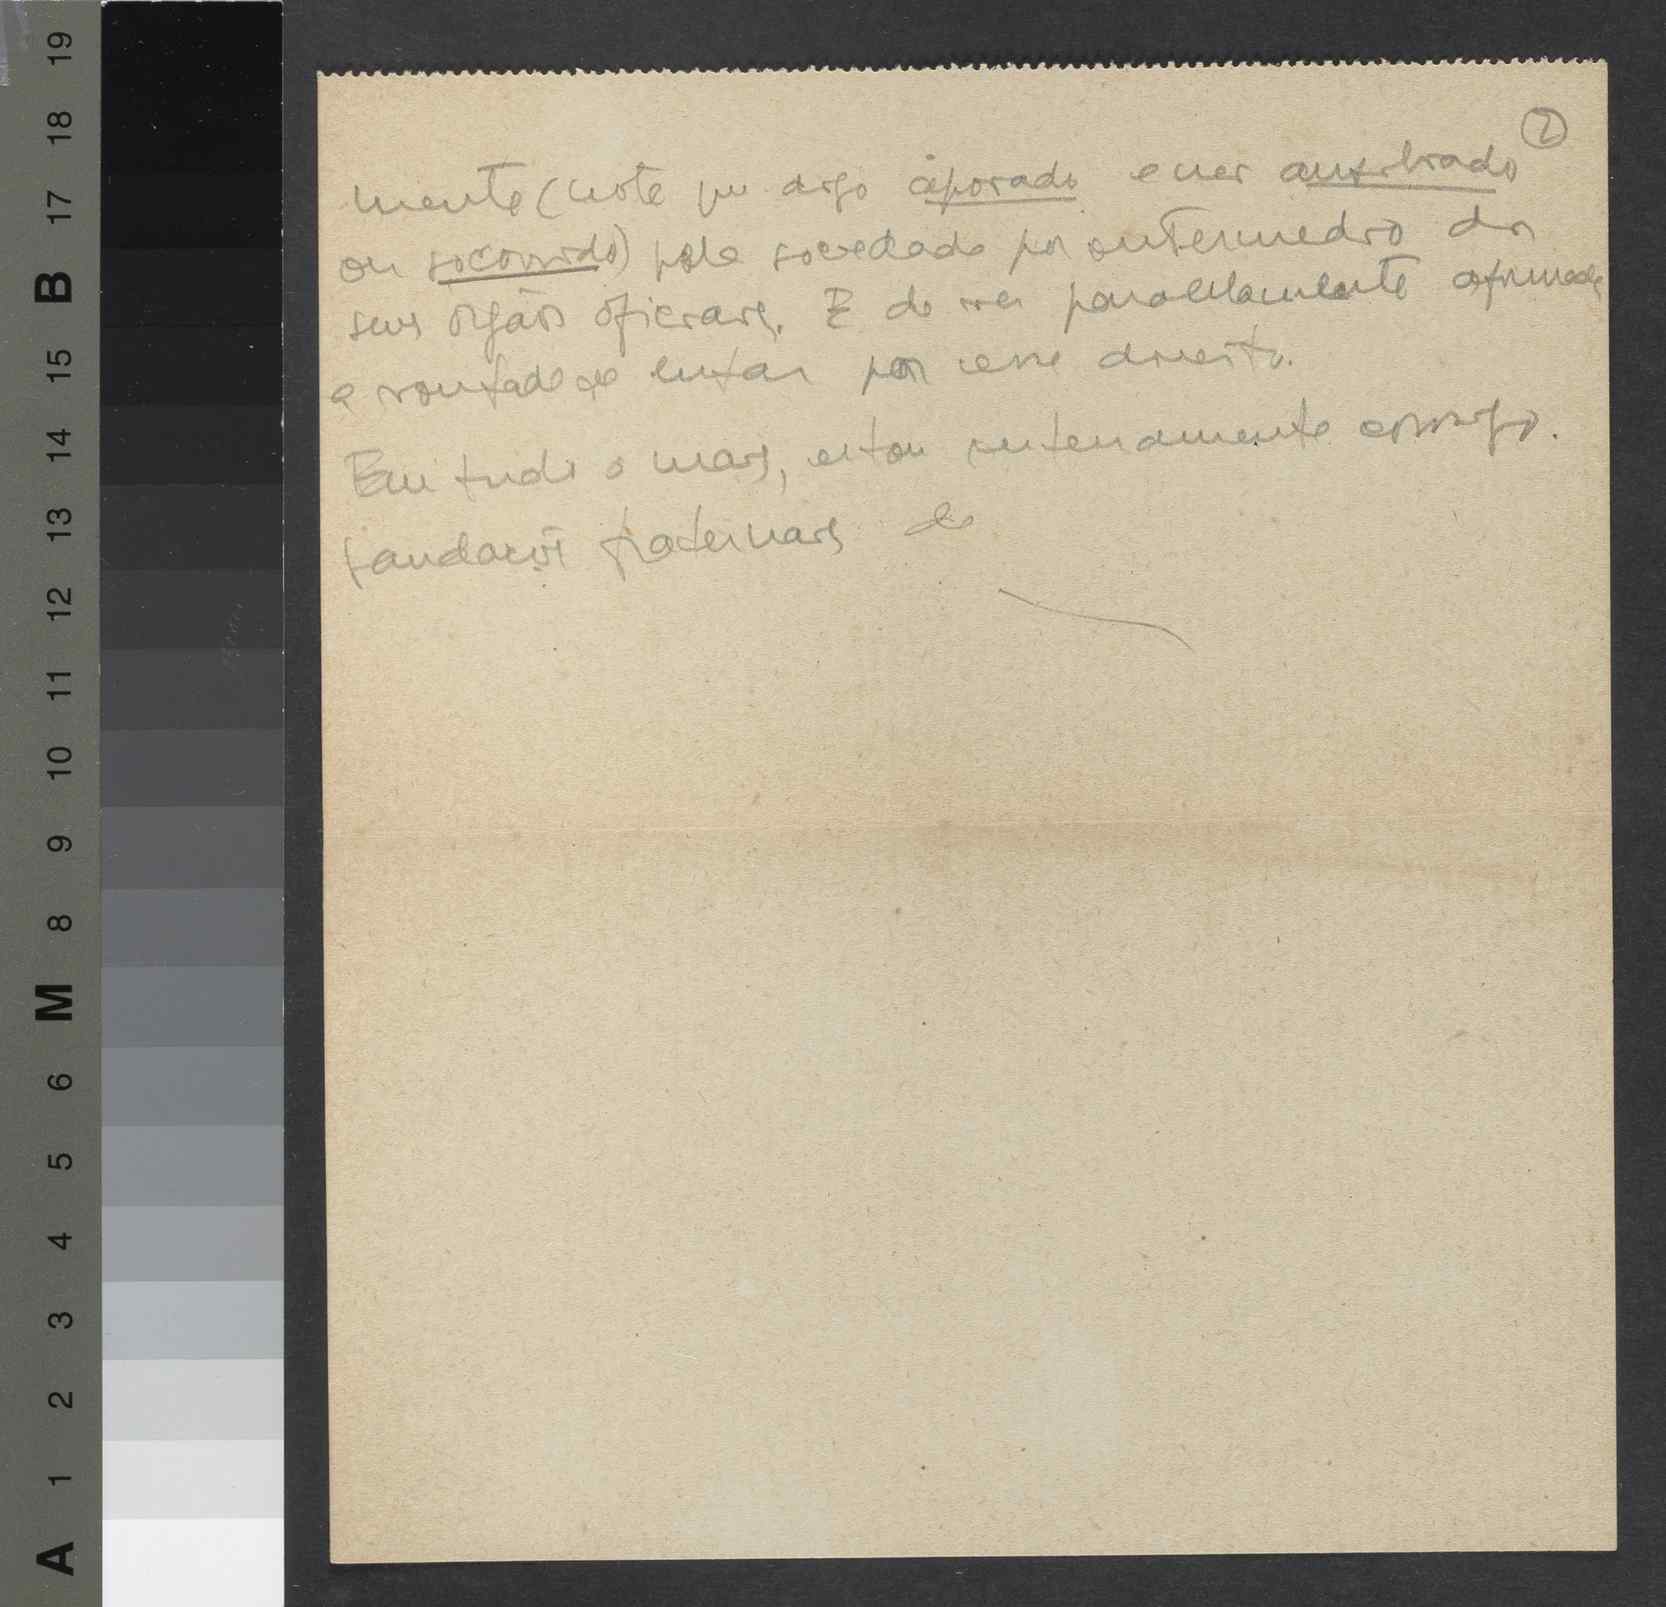 2
mente (note que digo apoiado e não auxiliado
ou socorrido) pela sociedade por intermedio dos
seus orgãos oficiais. E de ver paralelamente afirmada
a vontade de lutar por esse direito.
Em tudo o mais, estou inteiramente consigo.
Saudações fraternais de
19
18
17
B
15
14
13
12
11
10
9
8
M
6
5
4
3
2
1
A